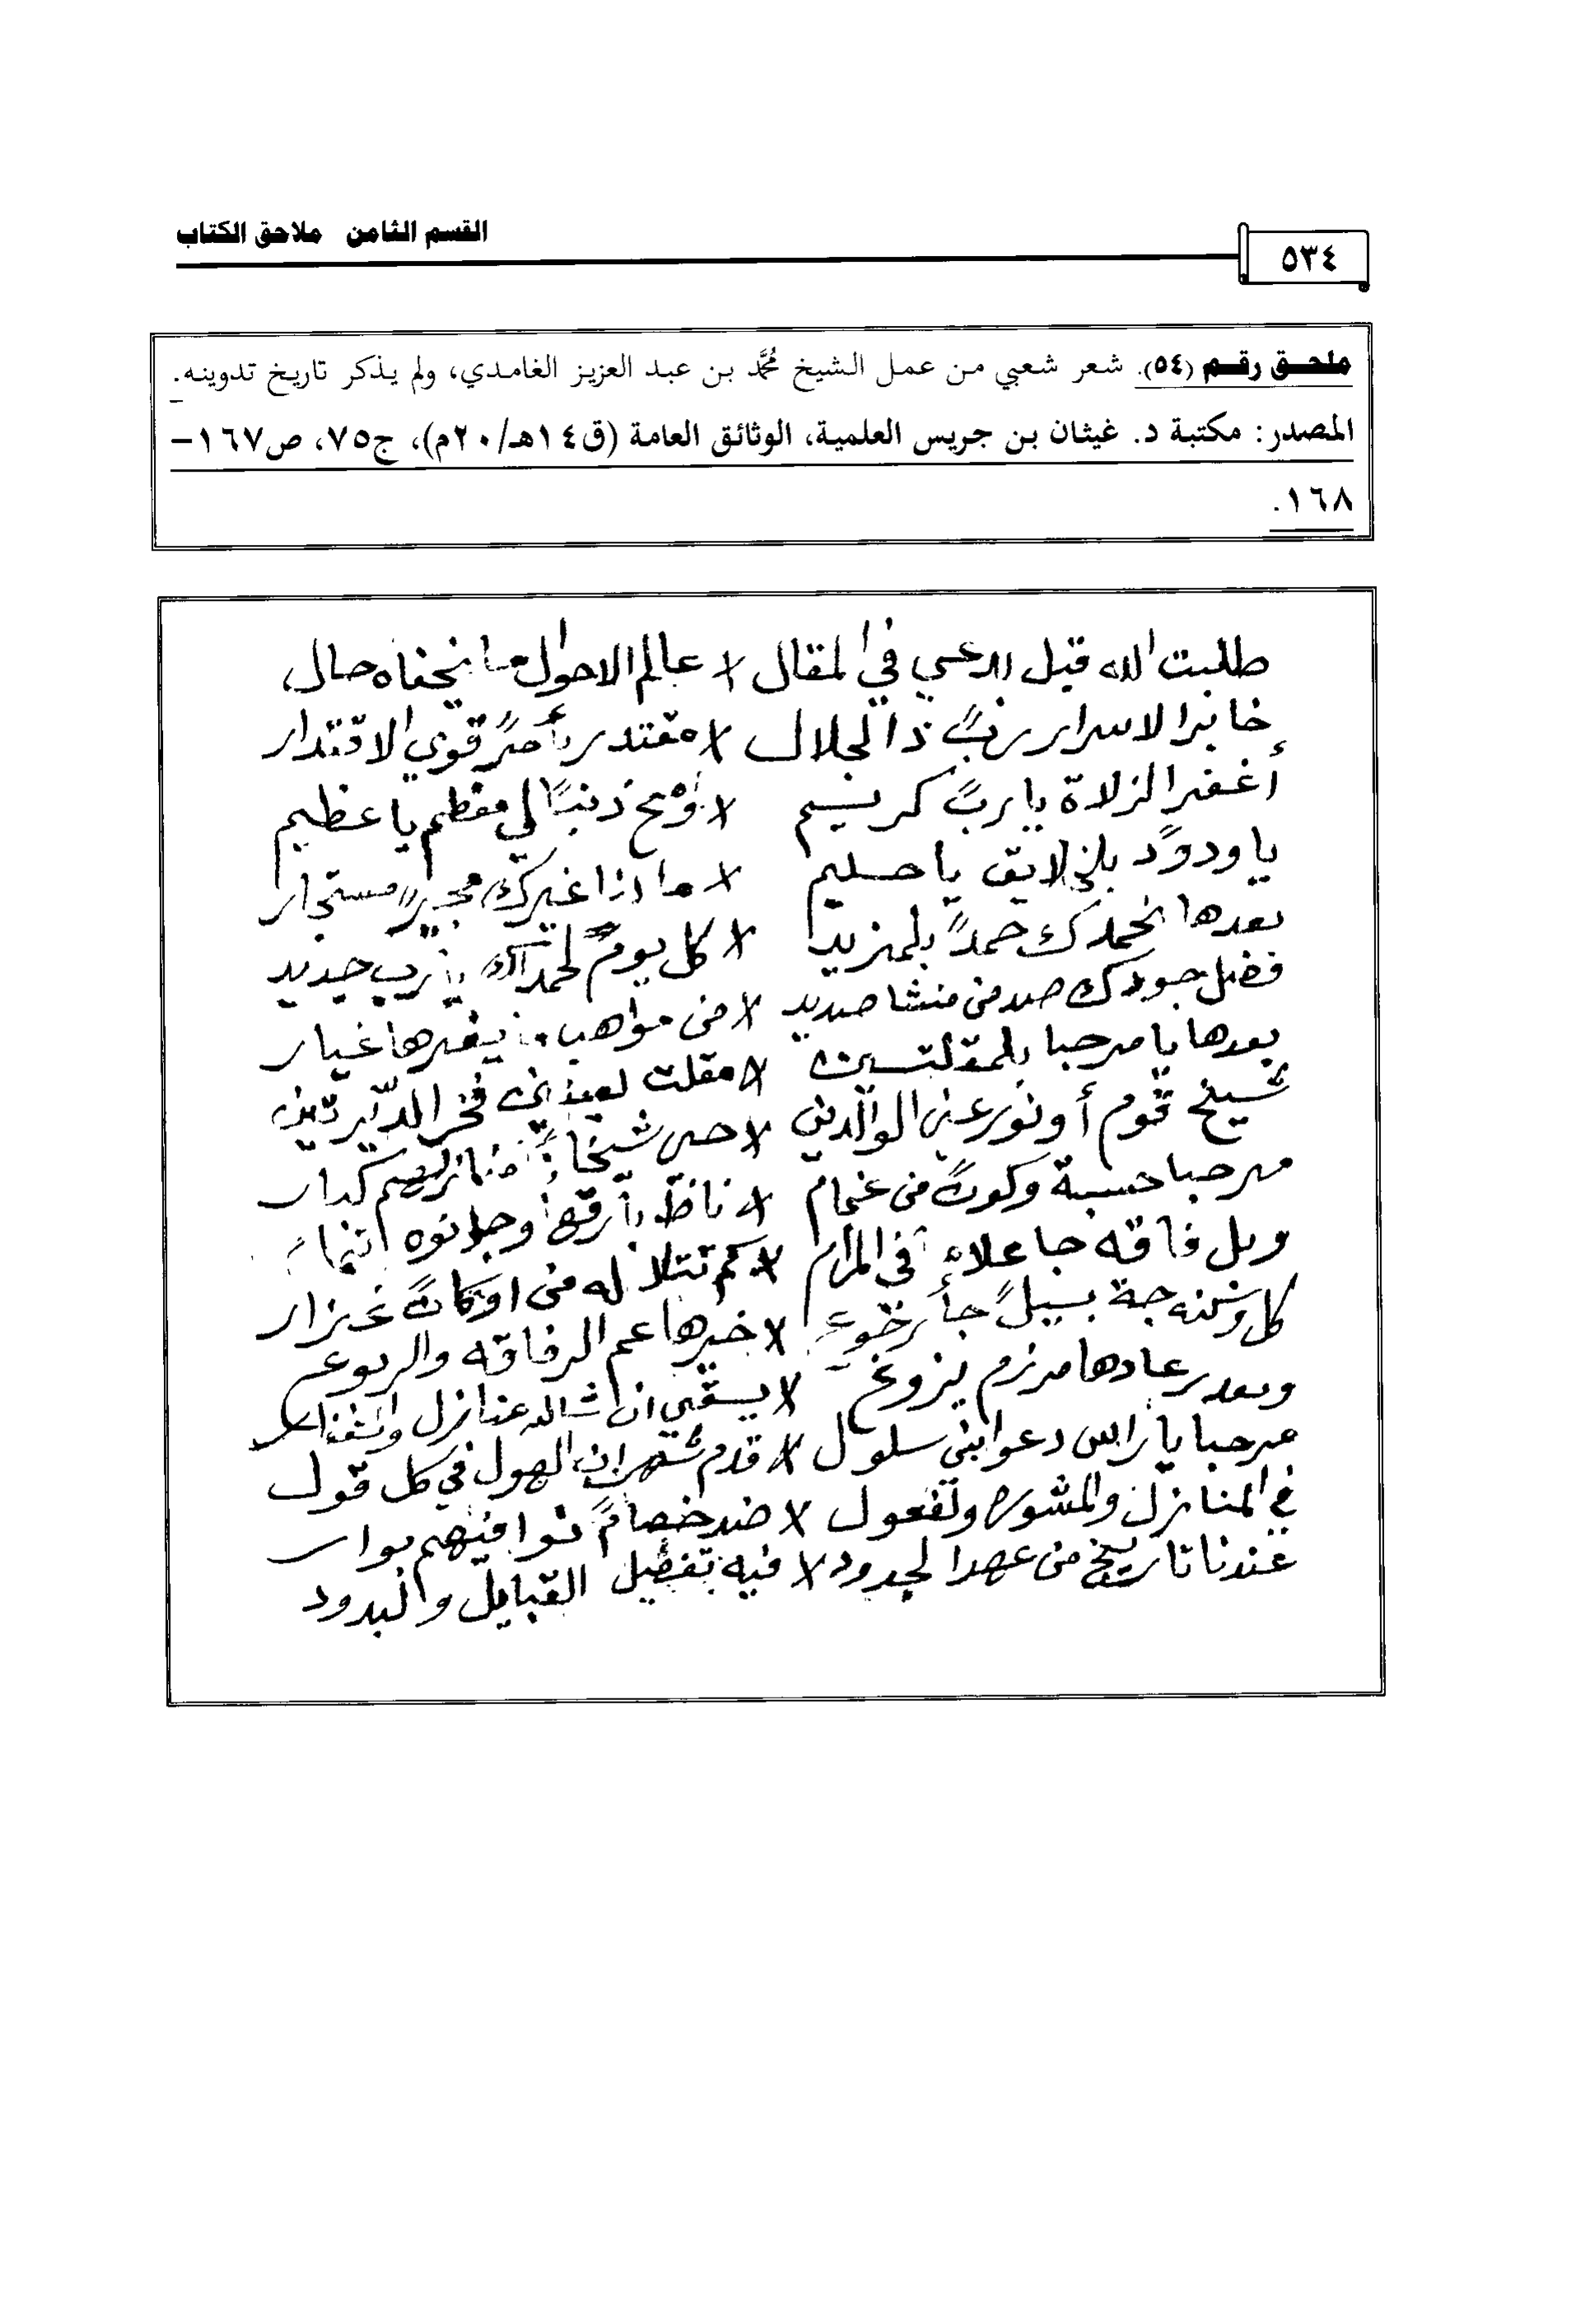 القسم الثامن ملاحق الكتاب
٥٣٤
ملحق رقم (٥٤). شعر شعبي من عمل الشيخ محمَّد بن عبد العزيز الغامدي، ولم يذكر تاريخ تدوينه.
المصدر: مكتبة د. غيثان بن جريس العلمية، الوثائق العامة (ق١٤هـ/٢٠م)، ج٧٥، ص١٦٧–
١٦٨.
طلبت الله قبل ادعي في المقال لا عالم الاحوال ما يخفاه حال
خابر الاسرار ربً ذا الجلال لا مقتدر بأمرً قوي الاقتدار
أغفر الزلاة يا ربً كريم لا ذنبًا لي معظم يا عظيم
يا ودودً بلخلايق يا حليم لا ما اذا غيرك مجيرً مستجار
بعدها نحمدك حمدً بلمزيد لا كل يومً لحمدك يا رب جديد
فضل جودك من منشا لا من مواهب يغيرها غيار
بعدها يا مرحبا بلمقلتين لا مقلت لعيني فخر
شيخ قوم أو نور عين الوالدين لا منازلهم كبار
مرحبا حسبة وكوفً من غمام لا ناظ بأرقها
وبل فاقه جا علاه في المرام لا كم تتلا له من غزار
كل جة بسيلً جأ لا خيرها عم الرفاقه والربوع
وبعد رعادها مرزم يزوع لا يسقي ان شالله منازل
مرحبا يا راس دعوا بني سلول لا قدم شهران الهول في كل قول
في المنازل والمشوره وتفعول لا ضد خصامً نوا فيهم بوار
عندنا تاريخ من عهد الجدود لا فيه تفضيل القبايل والبدود